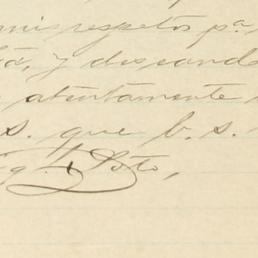 mis respetos pª
y deseando
atentamente
s. que b. s.
Soto,